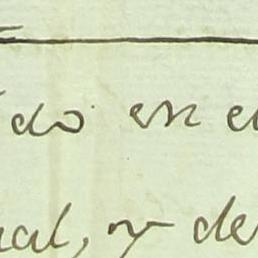 do en e
ual, y de